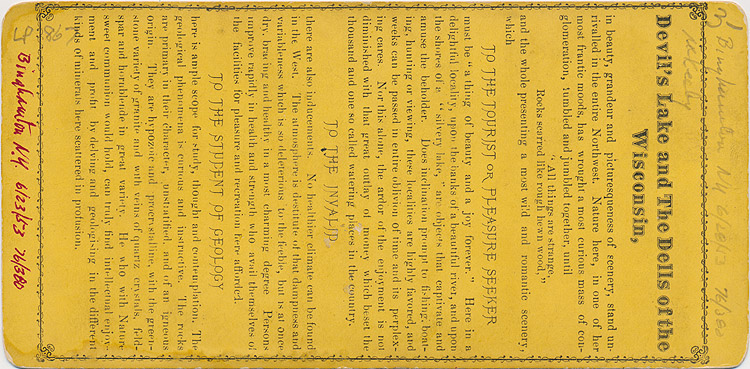 Devil's Lake and The Dells of the
Wisconsin,
in beauty, grandeur and picturesqueness of scenery, stand un-
rivalled in the entire Northwest. Nature here, in one of her
most frantic moods, has wrought a most curious mass of con-
glomeration, tumbled and jumbled together, until
"All things are strange,
Rocks scarred like rough hewn wood,"
and the whole presenting a most wild and romantic scenery,
which
TO THE TOURIST OR PLEASURE SEEKER
must be "a thing of beauty and a joy forever." Here in a
delightful locality, upon the banks of a beautiful river, and upon
the shores of a "silvery lake," are objects that captivate and
amuse the beholder. Does inclination prompt to fishing, boat-
ing, hunting or viewing, these localities are highly favored, and
weeks can be passed in entire oblivion of time and its perplex-
ing cares. Nor this alone, the ardor of the enjoyment is not
diminished with that great outlay of money which beset the
thousand and one so called watering places in the country.
TO THE INVALID
there are also inducements. No healthier climate can be found
in the West. The atmosphere is destitute of that dampness and
variableness which is so deleterious to the feeble, but is at once
dry, bracing and healthy in a most charming degree. Persons
improve rapidly in health and strength who avail themselves of
the facilities for pleasure and recreation here afforded.
TO THE STUDENT OF GEOLOGY
here is ample scope for study, thought and contemplation. The
geological phenomena is curious and instructive. The rocks
are primary in their character, unstratified, and of an igneous
origin. They are hypozoic and procrystalline with the green-
stone variety of granite and with veins of quartz crystals, feld-
spar and hornblende in great variety. He who with Nature
sweet communion would hold, can truly find intellectual enjoy-
ment and profit by delving and geologising in the different
kinds of minerals here scattered in profusion.
Binghamton N.Y. 6/23/53 76/360
Binghamton N.Y. 6/23/53 76/360